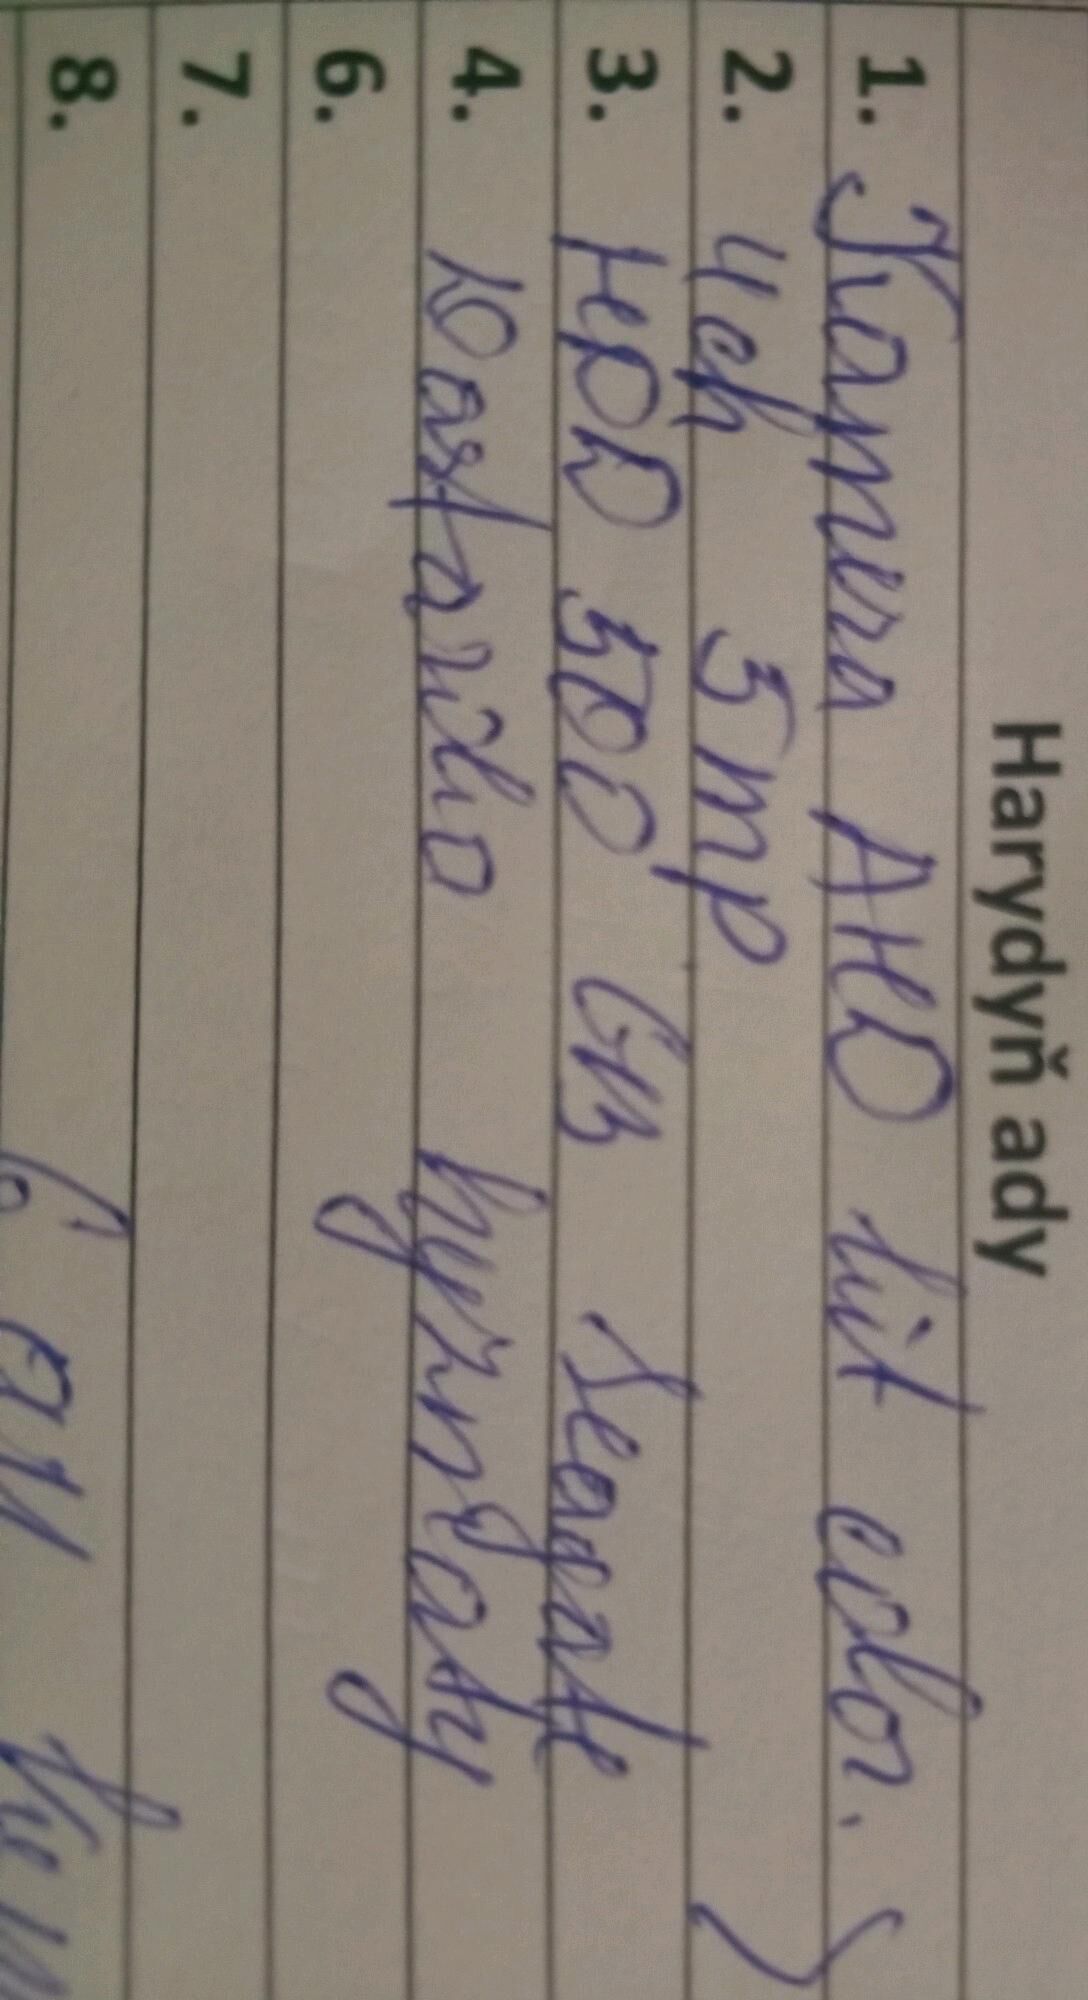 Harydyň ady
1. Kamera AHD hit color.
2. 4ch 5mp
3. HDD 500 GB Seagate
4. Ýastandio hyzmaty
6.
7.
8.